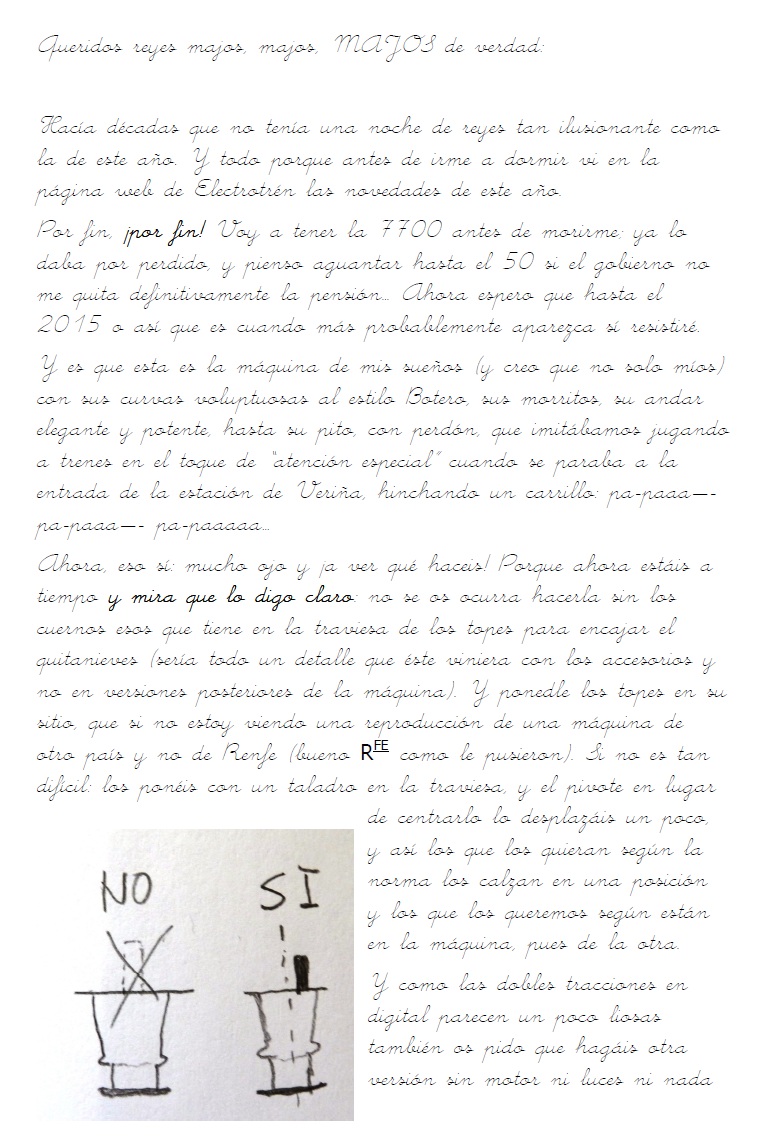 Queridos reyes majos, majos, MAJOS de verdad:
Hacía décadas que no tenía una noche de reyes tan ilusionante como
la de este año. Y todo porque antes de irme a dormir vi en la
página web de Electrotrén las novedades de este año.
Por fin, ¡por fin! Voy a tener la 7700 antes de morirme; ya lo
daba por perdido, y pienso aguantar hasta el 50 si el gobierno no
me quita definitivamente la pensión... Ahora espero que hasta el
2015 o así que es cuando más probablemente aparezca sí resistiré.
Y es que esta es la máquina de mis sueños (y creo que no solo míos)
con sus curvas voluptuosas al estilo Botero, sus morritos, su andar
elegante y potente, hasta su pito, con perdón, que imitábamos jugando
a trenes en el toque de "atención especial" cuando se paraba a la
entrada de la estación de Veriña, hinchando un carrillo: pa-paaa—-
pa-paaa—- pa-paaaaa...
Ahora, eso sí: mucho ojo y ¡a ver qué haceis! Porque ahora estáis a
tiempo y mira que lo digo claro: no se os ocurra hacerla sin los
cuernos esos que tiene en la traviesa de los topes para encajar el
quitanieves (sería todo un detalle que éste viniera con los accesorios y
no en versiones posteriores de la máquina). Y ponedle los topes en su
sitio, que si no estoy viendo una reproducción de una máquina de
otro país y no de Renfe (bueno RFE como le pusieron). Si no es tan
difícil: los ponéis con un taladro en la traviesa, y el pivote en lugar
de centrarlo lo desplazáis un poco,
y así los que los quieran según la
norma los calzan en una posición
y los que los queremos según están
en la máquina, pues de la otra.
NO SI
Y como las dobles tracciones en
digital parecen un poco liosas
también os pido que hagáis otra
versión sin motor ni luces ni nada